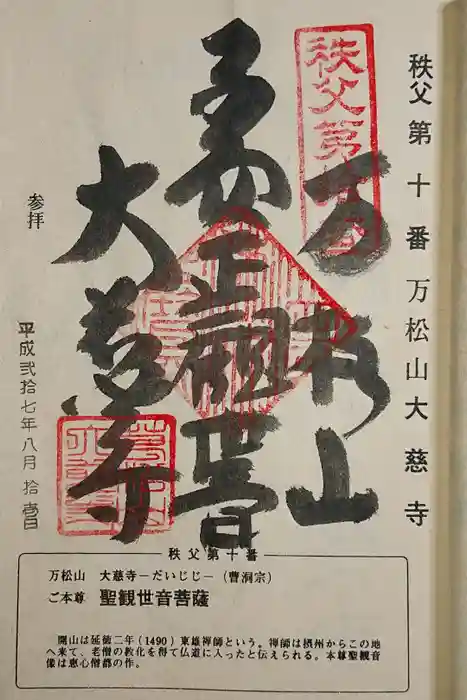 秩父第十番万松山大慈寺
秩父第
万松山
聖観音
大慈寺
参拝
平成弐拾七年八月拾壱日
秩父第十番
万松山 大慈寺－だいじじ－（曹洞宗）
ご本尊 聖観世音菩薩
開山は延徳二年（1490）東雄禅師という。禅師は摂州からこの地
へ来て、老僧の教化を得て仏道に入ったと伝えられる。本尊聖観音
像は恵心僧都の作。